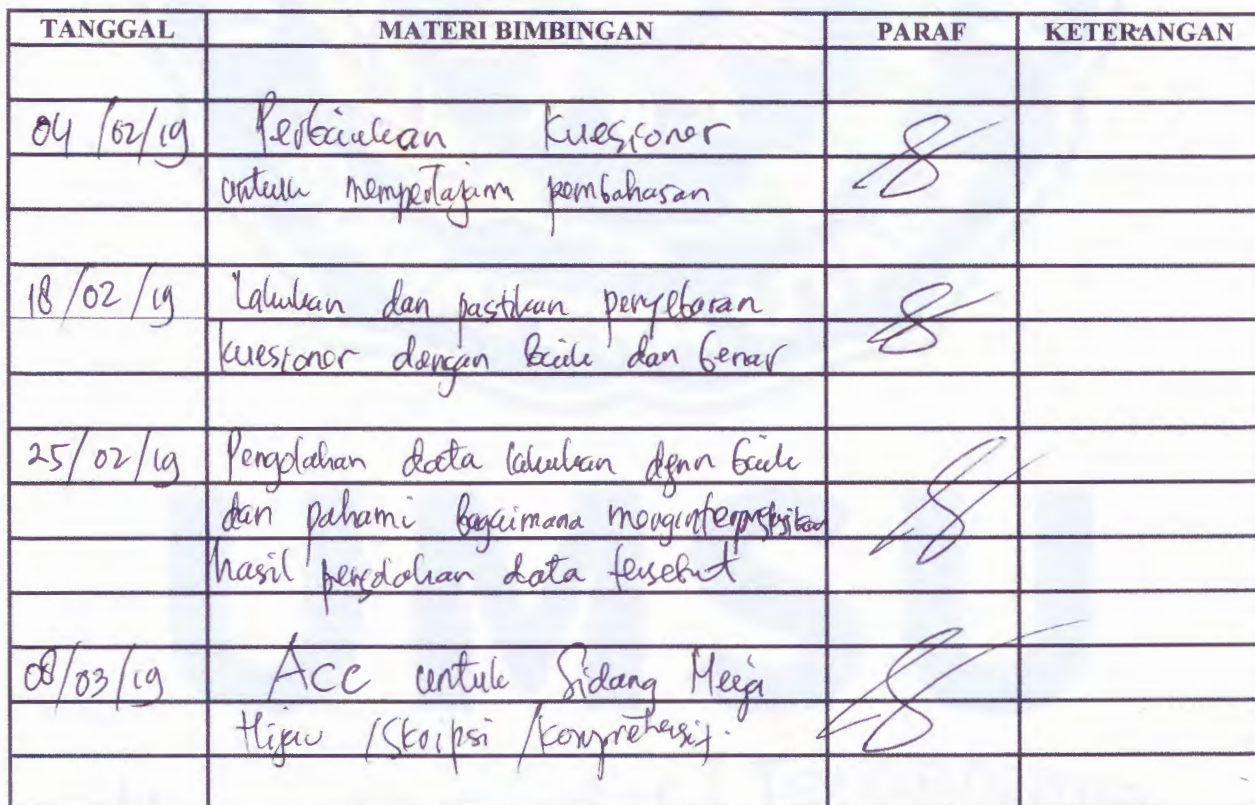 TANGGAL MATERI BIMBINGAN PARAF KETERANGAN
04/02/19 Perbaikan kuesioner
untuk mempertajam pembahasan
18/02/19 Lakukan dan pastikan penyebaran
kuesioner dengan baik dan benar
25/02/19 Pengolahan data lakukan dgnn baik
dan pahami bagaimana menginterprestasikan
hasil pengolahan data tersebut
08/03/19 ACC untuk Sidang Meja
Hijau /Skripsi /komprehensif.
UMSU